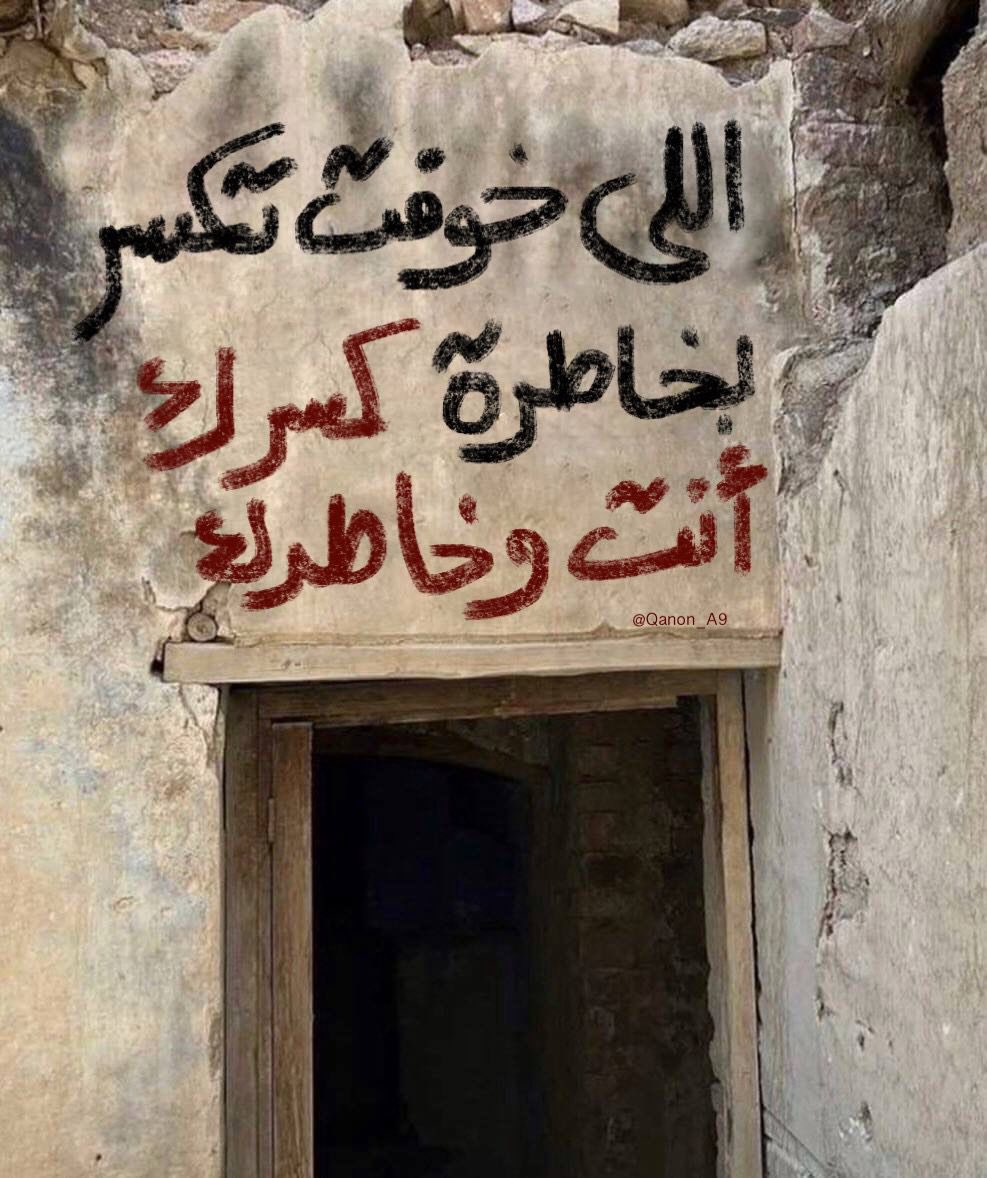 اللي خوفت تكسر
بخاطرة كسرك
أنت وخاطرك
@Qanon_A9